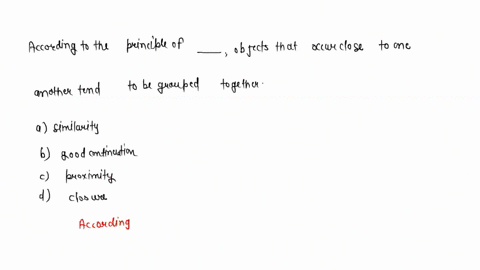 According to the principle of ___, objects that occur close to one
another tend to be grouped together.
a) similarity
b) good continuation
c) proximity
d) closure
According